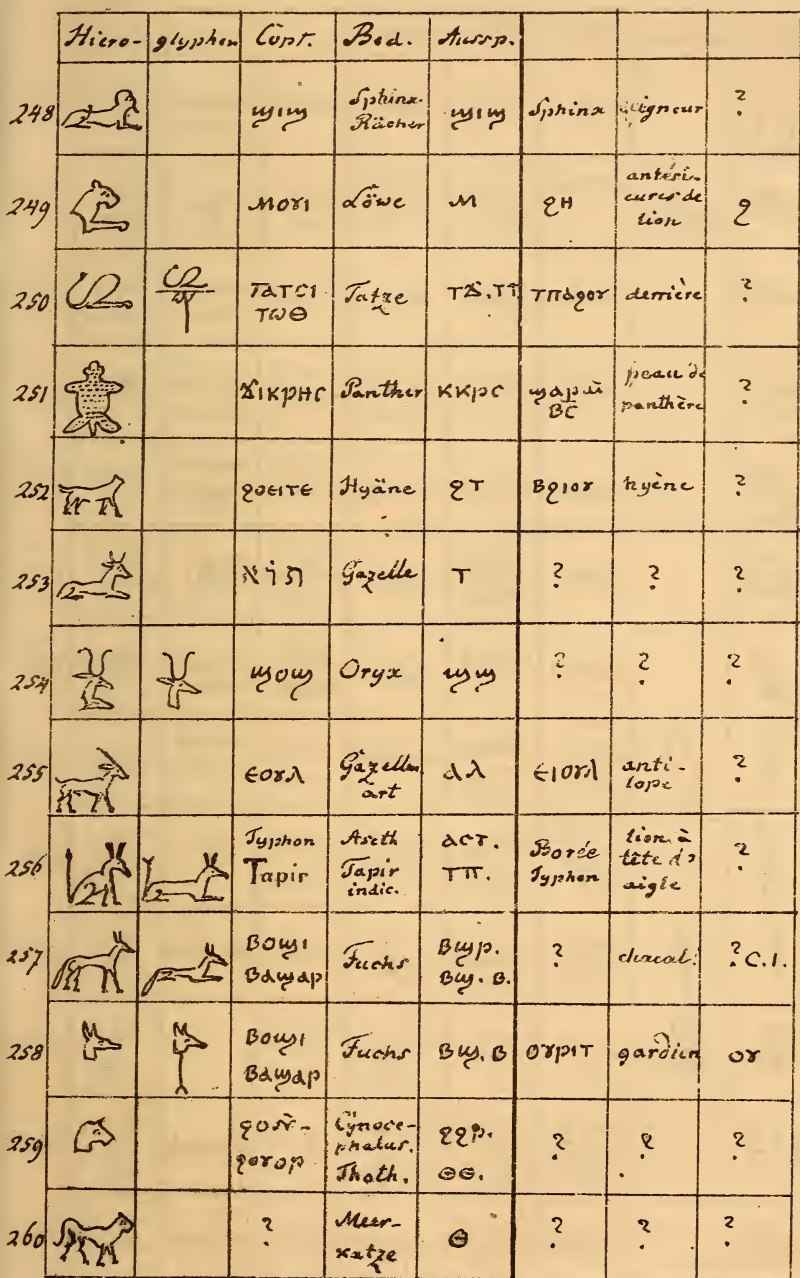 Hiero- glyphen Copt. Bed. Aussp.
248 ϣⲓϣ Sphinx- Rächer ϣⲓϣ Sphinx seigneur ?
249 ⲙⲟⲩⲓ Löwe ⲙ ϩⲏ antéri- eures de lion ϩ
250 ⲧⲁⲧⲥⲓ ⲧⲱⲑ Tatze ⲧϫ. ⲧⲧ ⲧⲡⲁϩⲟⲩ derrière ?
251 ϫⲓⲕⲣⲏⲥ Panther ⲕⲕⲣⲥ ⲃⲥ peau de panthère ?
252 ϩⲟⲉⲓⲧⲉ Hyäne ϩⲧ ⲃϩⲓⲟⲩ hyène ?
253 תוֹא Gazelle ⲧ ? ? ?
254 ϣⲟϣ Oryx ϣϣ ? ? ?
255 ⲉⲟⲩⲗ Gazellen art ⲁⲗ ⲉⲓⲟⲩⲗ anti- lope ?
256 Typhon Tapir Aseth Tapir indic. ⲁⲥⲧ. ⲧⲡ. Borée Typhon lion à tête d' aigle ?
257 ⲃⲟϣⲓ ⲃⲁϣⲁⲣ Fuchs ⲃϣⲣ. ⲃϣ. ⲃ. ? chacal. ? C.I.
258 ⲃⲟϣⲓ ⲃⲁϣⲁⲣ Fuchs ⲃϣ. ⲃ ⲟⲩⲣⲓⲧ gardien ⲟⲩ
259 ϩⲟⲩϩⲟⲣ Cynoce- phalus. Thoth. ϩϩⲣ. ⲑⲑ. ? ? ?
260 ? Meer- katze ⲑ ? ? ?